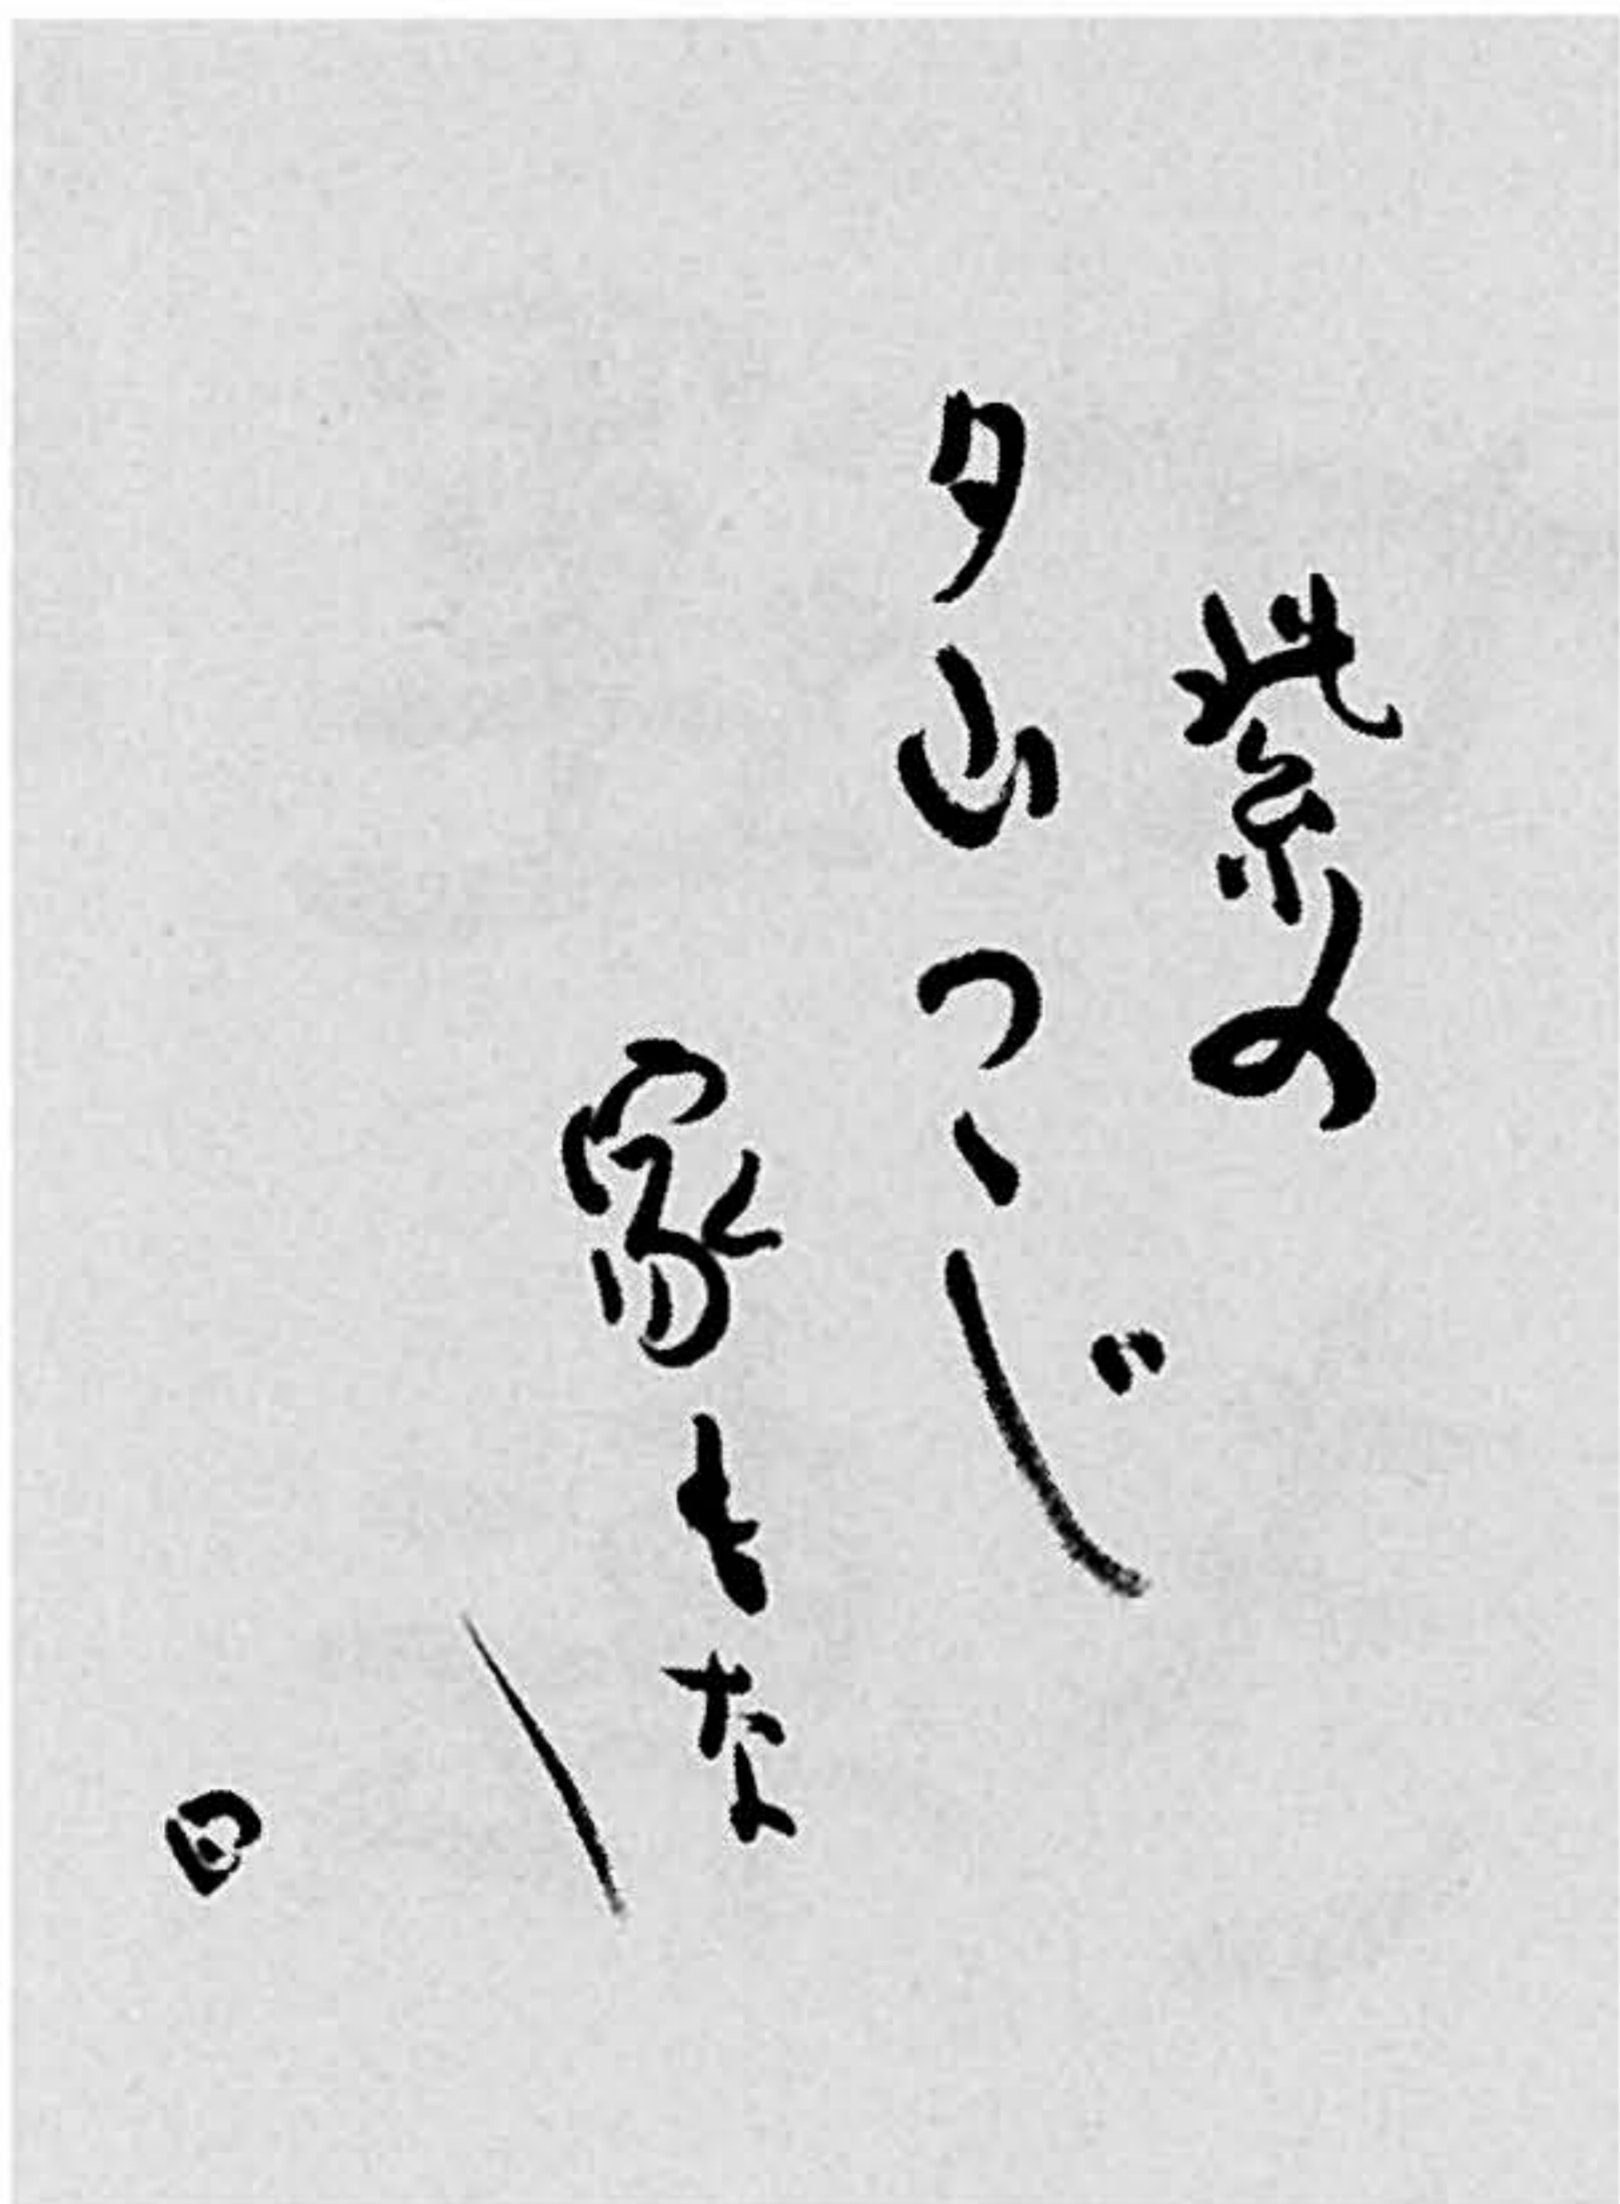 紫の
夕山つゝじ
家もなし